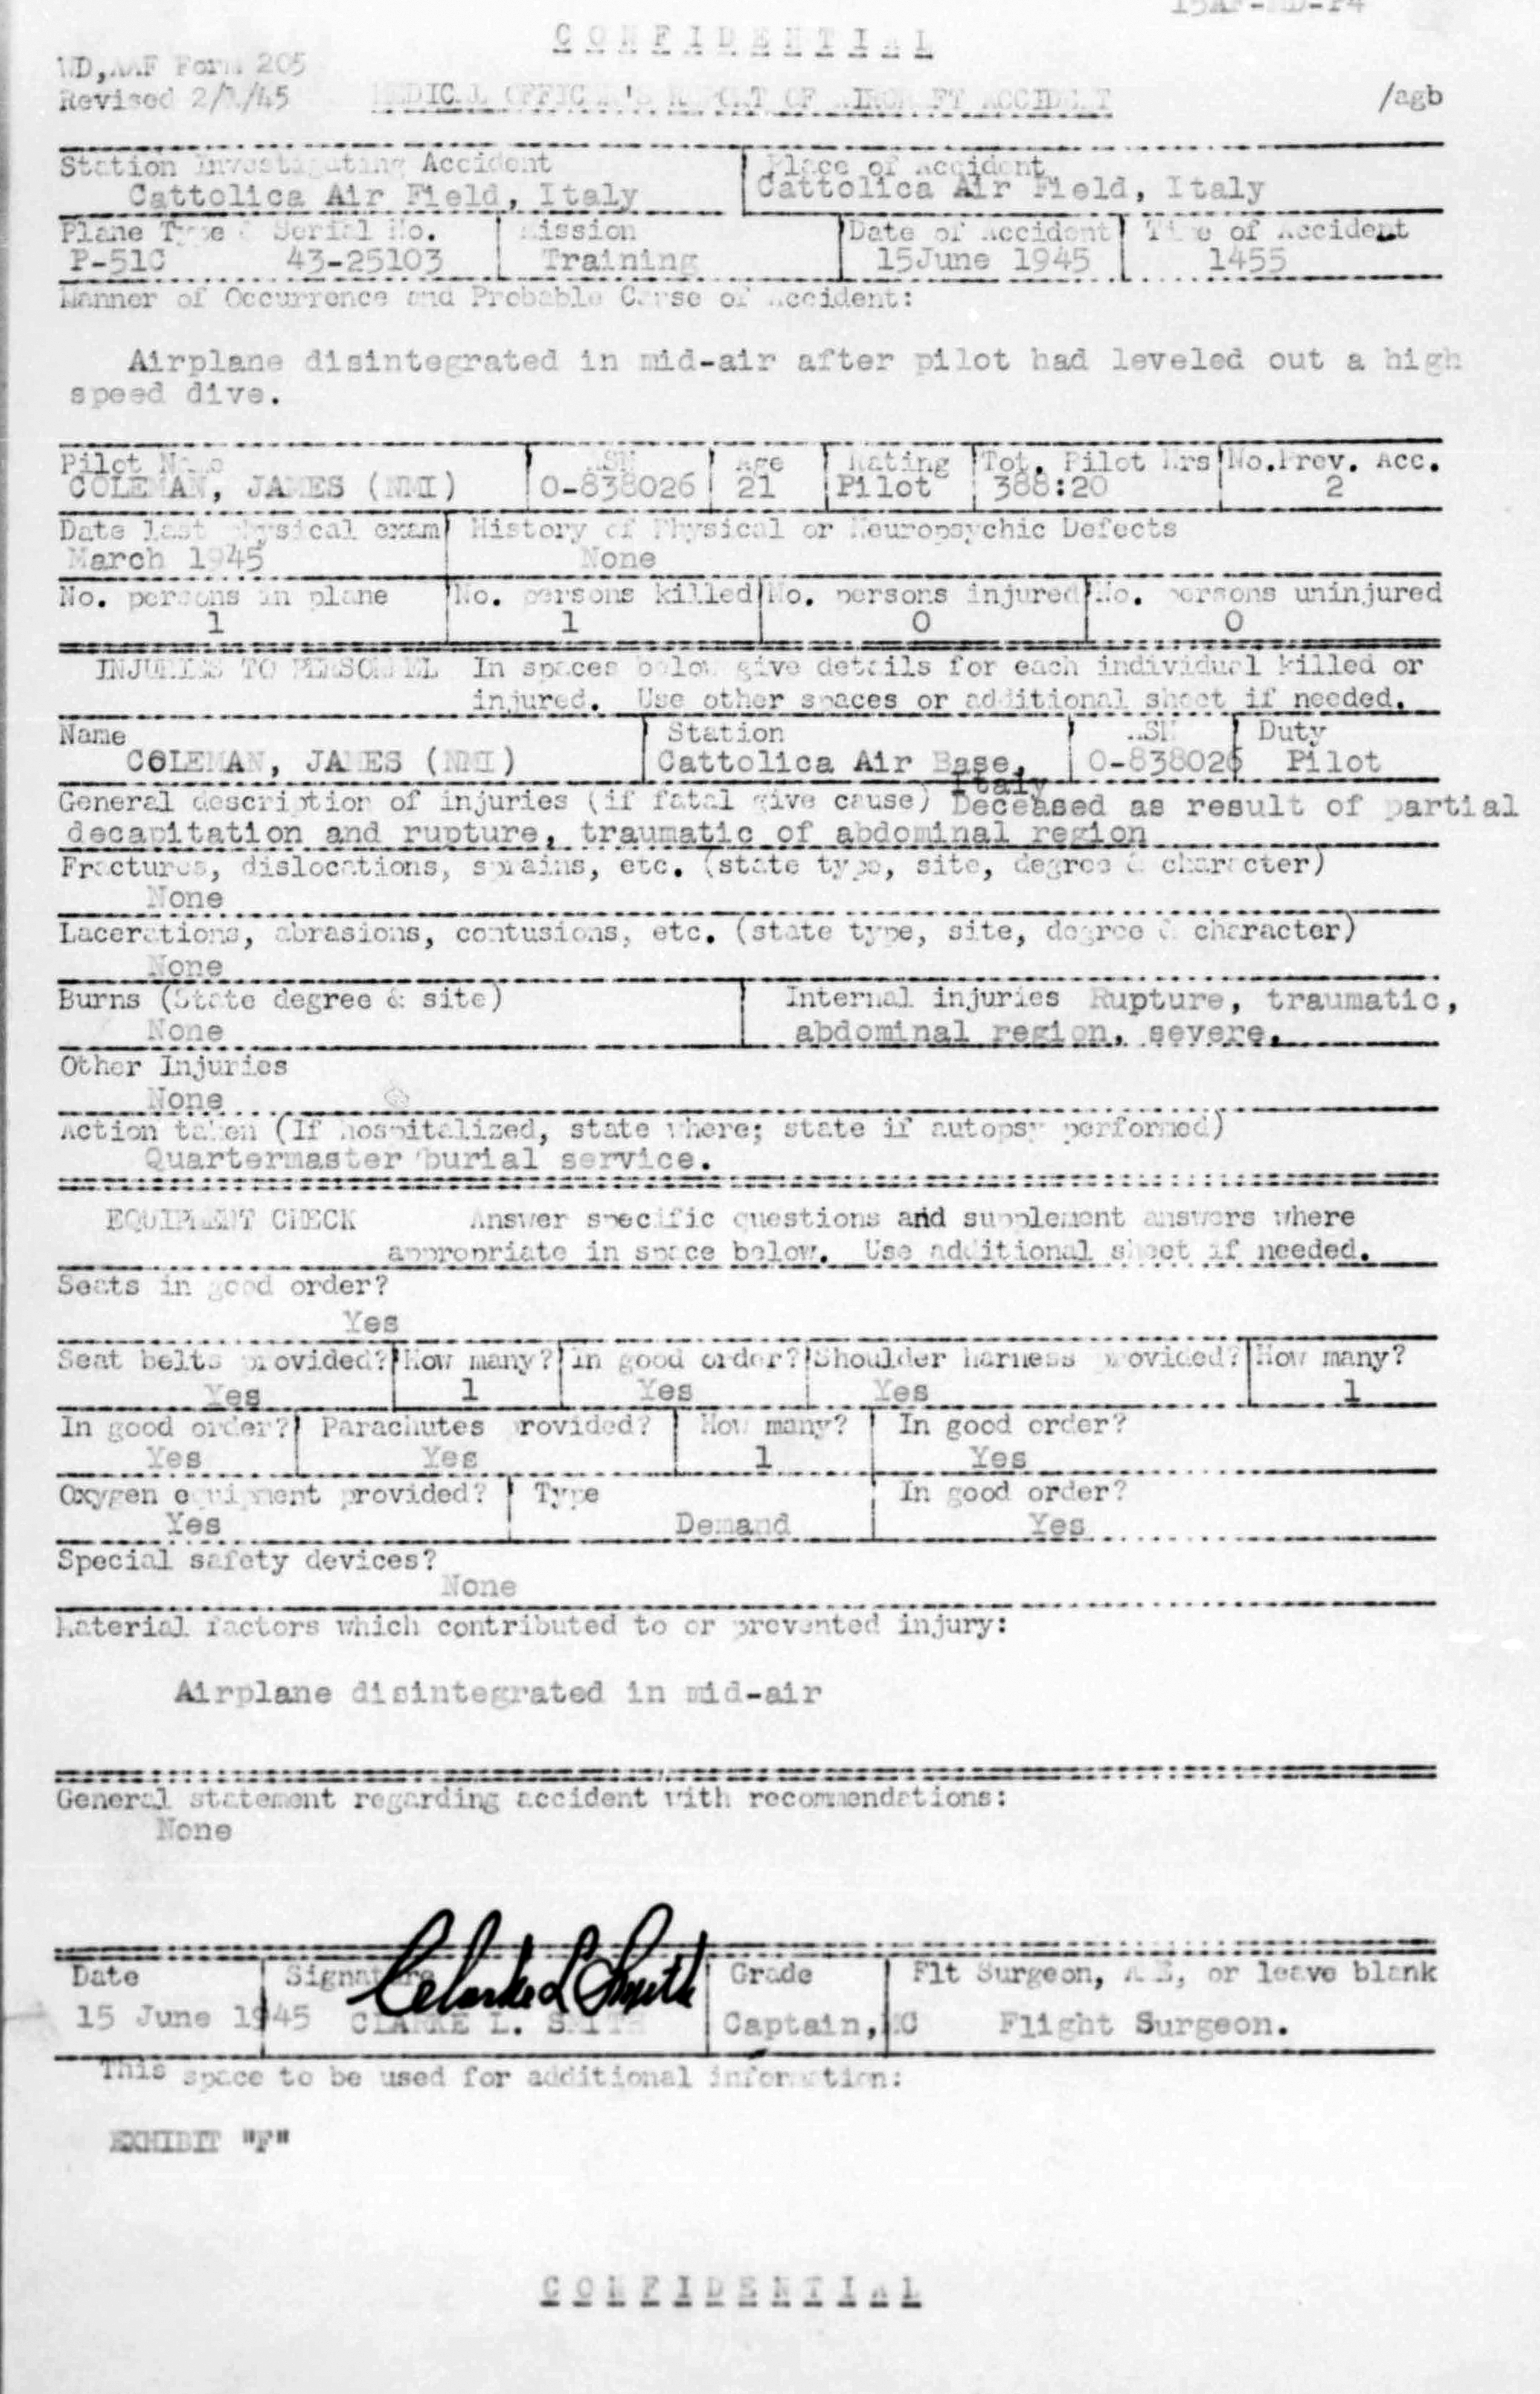 15AF-MD-P4
CONFIDENTIAL
WD,AAF Form 205
Revised 2/ /45 MEDICAL OFFICER'S REPORT OF AIRCRAFT ACCIDENT /agb
Station Investigating Accident Place of Accident
Cattolica Air Field, Italy Cattolica Air Field, Italy
Plane Type & Serial No. Mission Date of Accident Time of Accident
P-51C 43-25103 Training 15June 1945 1455
Manner of Occurrence and Probable Cause of Accident:
Airplane disintegrated in mid-air after pilot had leveled out a high
speed dive.
Pilot Name ASN Age Rating Tot. Pilot Hrs No.Prev. Acc.
COLEMAN, JAMES (NMI) O-838026 21 Pilot 388:20 2
Date last physical exam History of Physical or Neuropsychic Defects
March 1945 None
No. persons in plane No. persons killed No. persons injured No. persons uninjured
1 1 0 0
INJURIES TO PERSONNEL In spaces below give details for each individual killed or
injured. Use other spaces or additional sheet if needed.
Name Station ASN Duty
COLEMAN, JAMES (NMI) Cattolica Air Base, O-838026 Pilot
Italy
General description of injuries (if fatal give cause) Deceased as result of partial
decapitation and rupture, traumatic of abdominal region
Fractures, dislocations, sprains, etc. (state type, site, degree & character)
None
Lacerations, abrasions, contusions, etc. (state type, site, degree & character)
None
Burns (State degree & site) Internal injuries Rupture, traumatic,
None abdominal region, severe.
Other Injuries
None
Action taken (If hospitalized, state where; state if autopsy performed)
Quartermaster burial service.
EQUIPMENT CHECK Answer specific questions and supplement answers where
appropriate in space below. Use additional sheet if needed.
Seats in good order?
Yes
Seat belts provided? How many? In good order? Shoulder harness provided? How many?
Yes 1 Yes Yes 1
In good order? Parachutes provided? How many? In good order?
Yes Yes 1 Yes
Oxygen equipment provided? Type In good order?
Yes Demand Yes
Special safety devices?
None
Material factors which contributed to or prevented injury:
Airplane disintegrated in mid-air
General statement regarding accident with recommendations:
None
Date Signature Clarke L Smith Grade Flt Surgeon, A E, or leave blank
15 June 1945 CLARKE L. SMITH Captain, MC Flight Surgeon.
This space to be used for additional information:
EXHIBIT "F"
CONFIDENTIAL